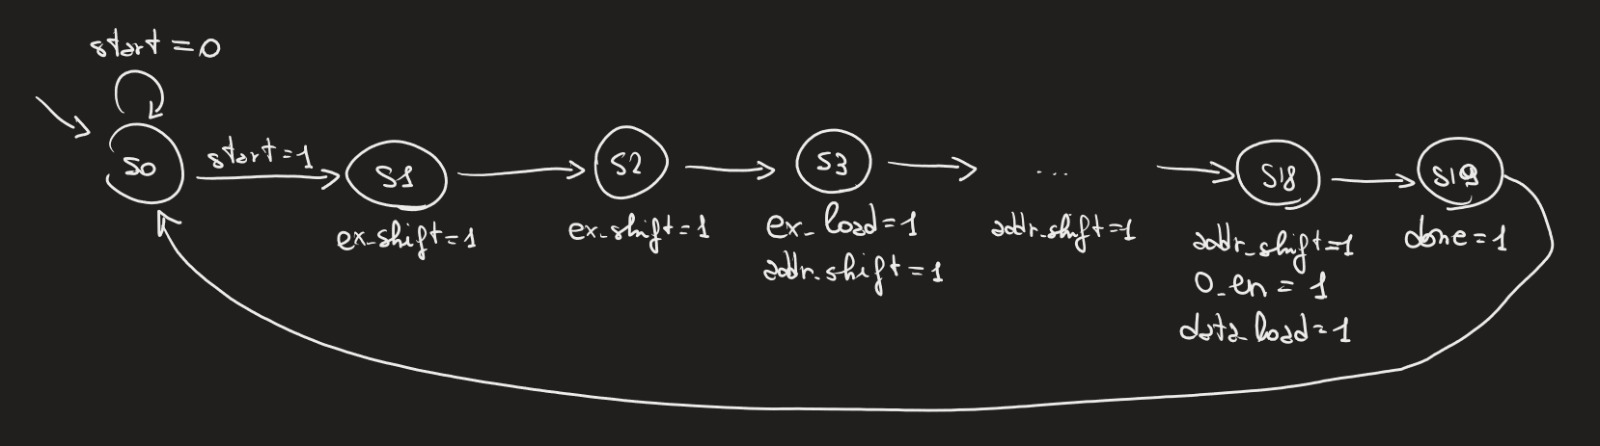 start=0
S0
start=1
S1
ex_shift=1
S2
ex_shift=1
S3
ex_load=1
addr_shift=1
...
addr_shift=1
S18
addr_shift=1
O_en=1
data_load=1
S19
done=1